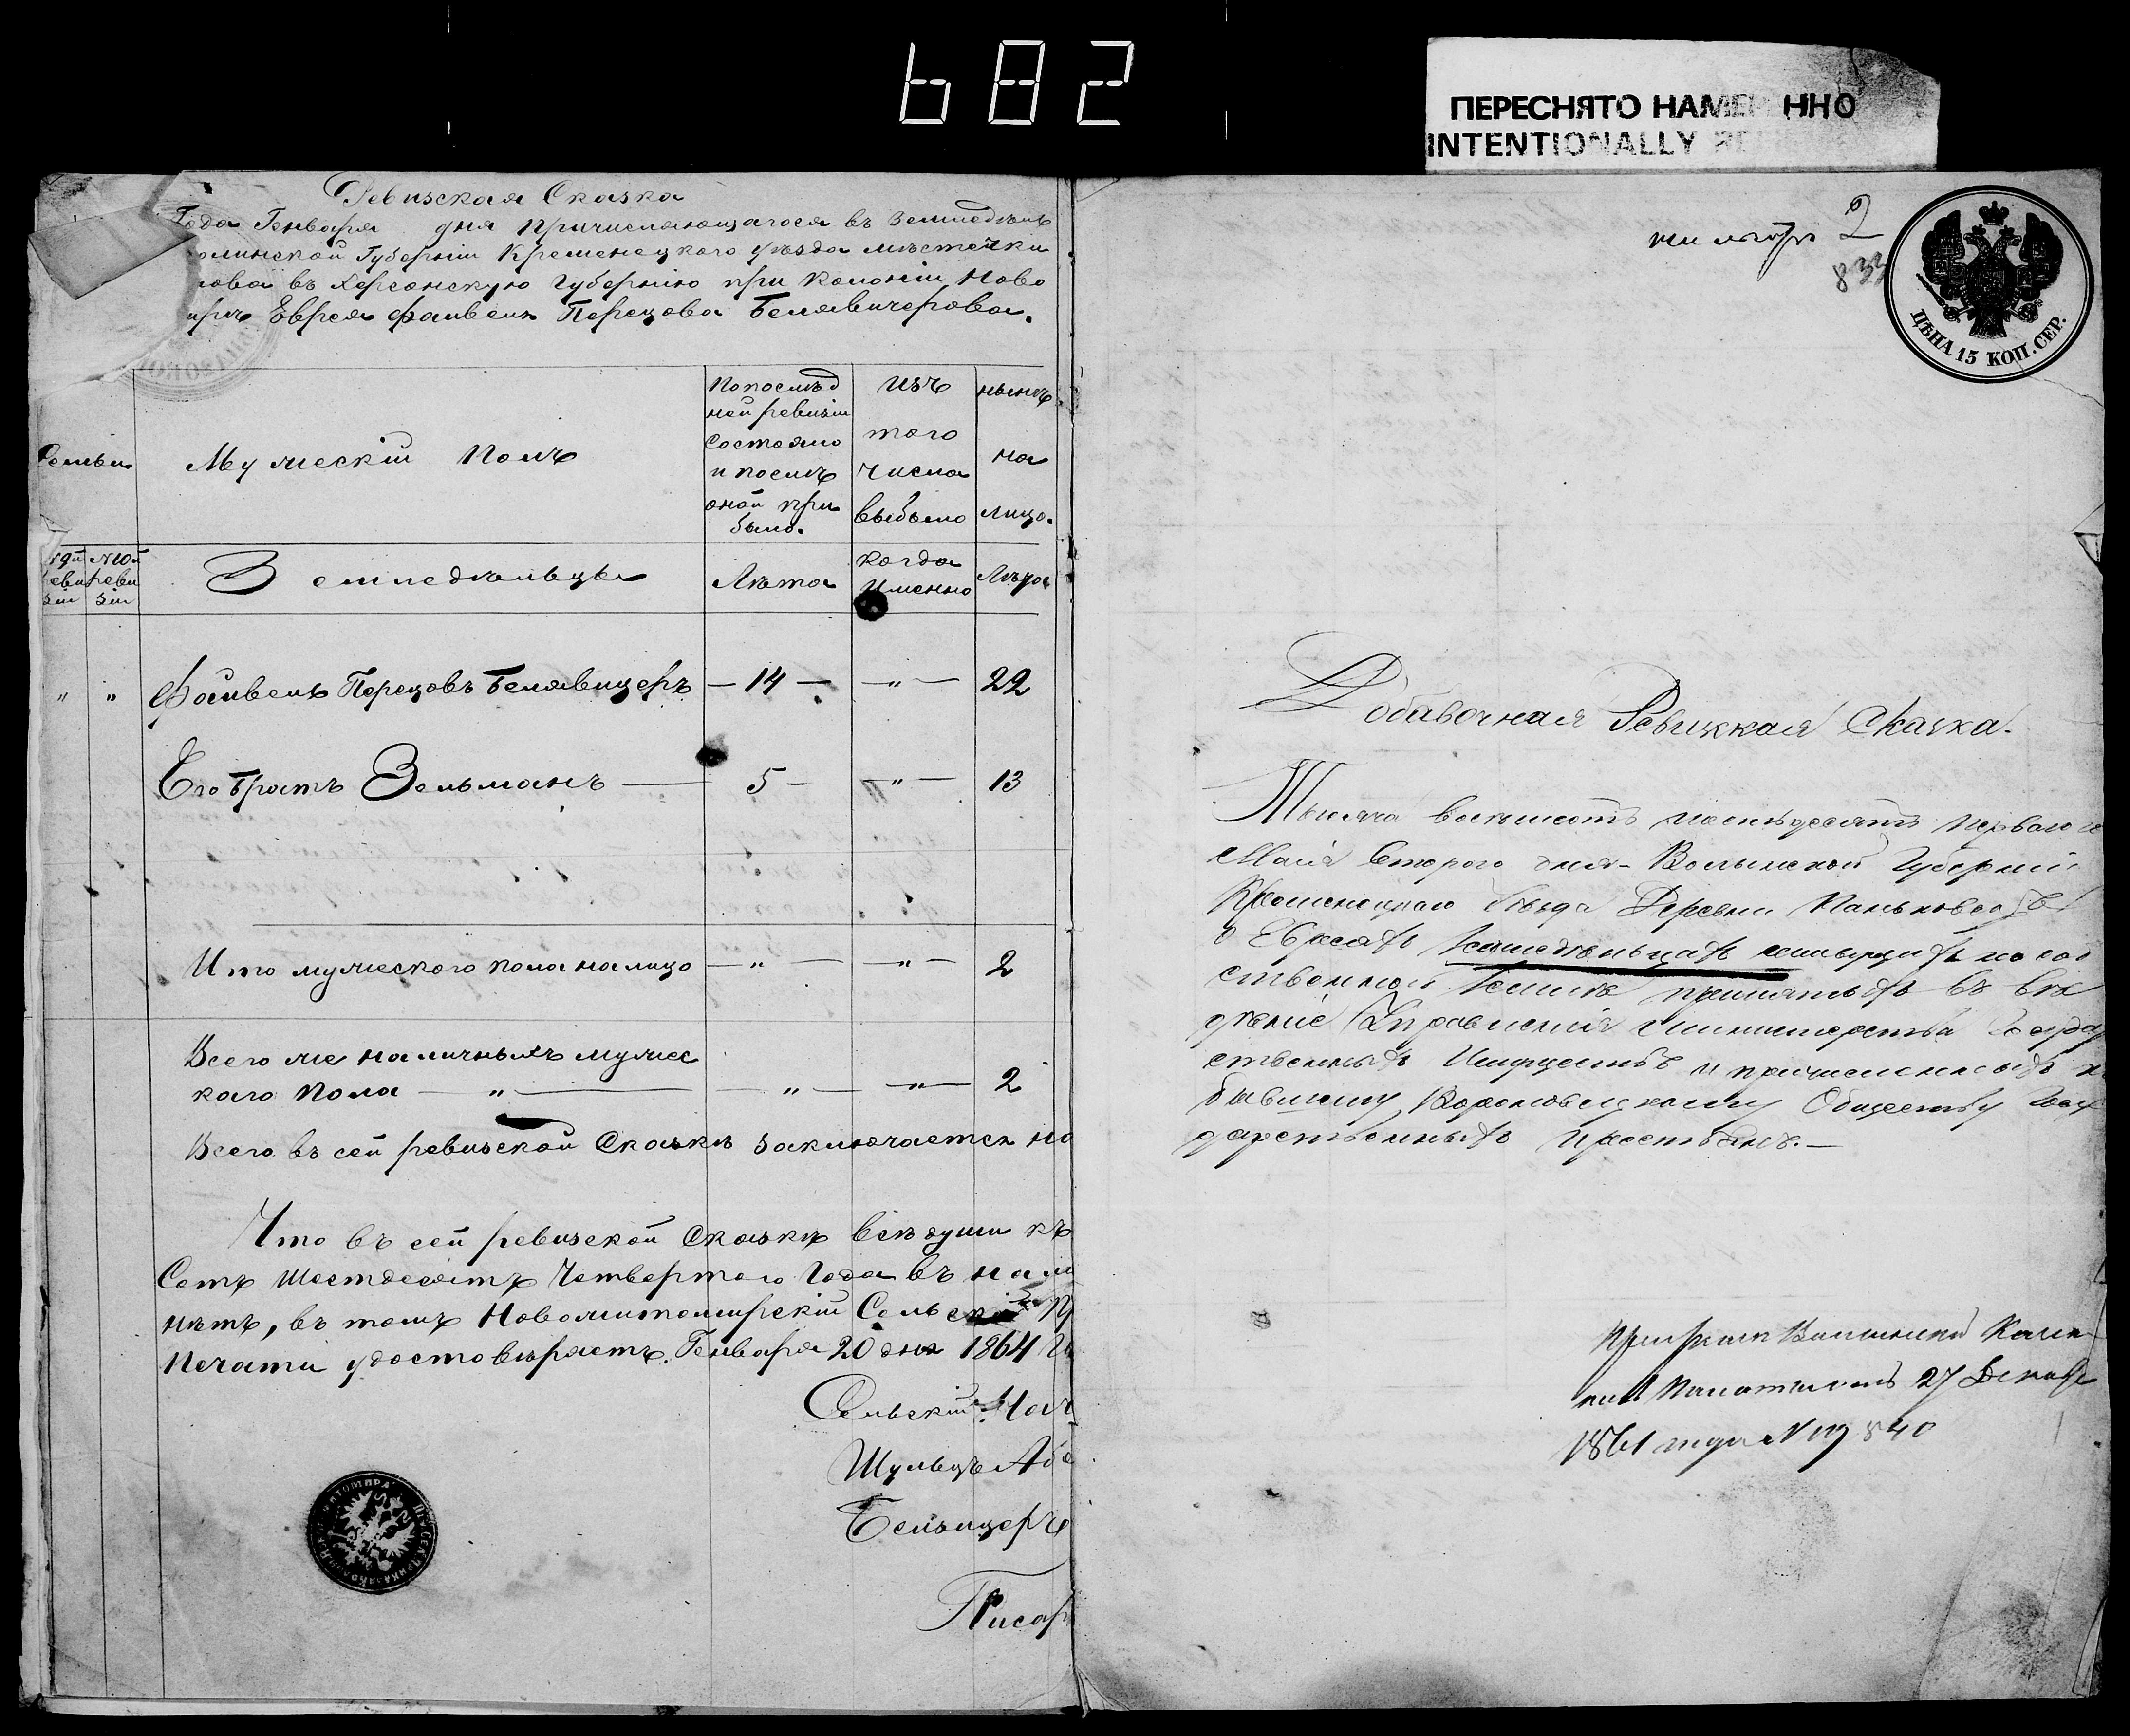 682
ПЕРЕСНЯТО НАМЕР ННО
INTENTIONALLY RE
Ревизская Сказка
Года Генваря дня причисляющагося въ Земледѣльцы
олинской Губерніи Кременецкого уѣзда мѣстечки
нова въ Херсонскую Губернію при колоніи Ново
Еврея Файвель Перецова Белявичерова.
Семьи
Мужескій Полъ
По послѣд
ней ревизіи
состояло
и послѣ
оной при
было.
изъ
того
числа
выбыло
нынѣ
на
лицо.
9й
реви
зіи
№ 10й
реви
зіи
Земледѣльцы
Лѣта
когда
именно
Лѣта
" " Файвель Перецовъ Белявицеръ — 14 — — " — 22
Его братъ Зельманъ — 5 — — " — 13
Итого мужеского пола налицо — " — — " — 2
Всего же наличныхъ мужес
каго пола — " — — " — — " — 2
Всего въ сей ревизской Сказкѣ заключается на
Что въ сей ревизской Сказкѣ всѣ души къ
Сотъ Шестдесятъ Четвертого Года въ нали
нѣтъ, въ томъ Новожитомирскій Сельскій П
печати удостовѣряетъ. Генваря 20 дня 1864 Го
Сельскій Нач
Шульцъ Аб
Бельцеръ
Писар
2
833
ЦѢНА 15 КОП. СЕР.
Добавочная Ревизкая Сказка.
Тысяча восемьсотъ шестьдесятъ перваго го
Маія Второго дня Волынской Губерніи
Кременецкаго уѣзда Деревни
о Евреяхъ Земледѣльцахъ живущихъ на соб
ственной землѣ принятыхъ въ вѣ
дѣніе Управленія Министерства Госуда
ственныхъ Имуществъ и причисленныхъ к
бывшему Вороновецкому Обществу Госу
дарственныхъ Крестьянъ. —
При указѣ Волынской Казен
ной Палаты отъ 27 Декабр
1861 года № 19840